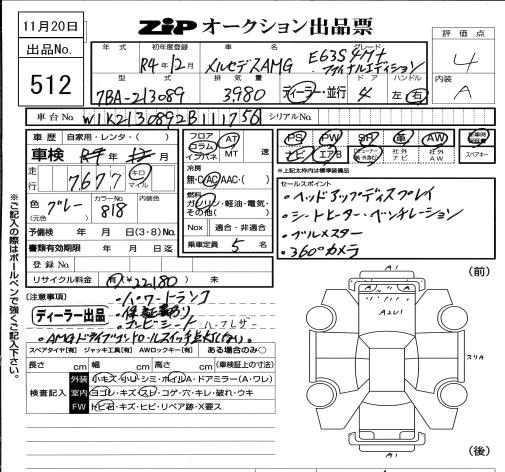 11月20日
ZIP オークション出品票
評価点
4
内装
A
出品No.
512
年式 初年度登録 車名 グレード
R4年12月 メルセデスAMG E63S 4M+ ファイナルエディション
型式 排気量 ドア ハンドル
7BA-213089 3980 ディーラー・並行 4 左・右
車台No. W1K2130892B111756 シリアルNo.
車歴 自家用・レンタ・( )
車検 年 月
走行 7677 キロ マイル
色(元色) グレー カラーNo. 818 内装色
予備検 年 月 日(3・8)No.
書類有効期限 年 月 日迄
登録No.
リサイクル料金 有(¥22180) 未
フロア コラム インパネ AT MT 速
冷房 無・C・AC・AAC・( )
燃料 ガソリン・軽油・電気・その他( )
Nox 適合・非適合
乗車定員 5 名
PS PW SR 革 AW
ナビ エアB 社外ナビ 社外AW スペアキー
※上記太枠内は標準装備品
セールスポイント
・ヘッドアップディスプレイ
・シートヒーター・ベンチレーション
・ブルメスター
・360°カメラ
(注意事項)
ディーラー出品
・パワートランク
・保証書あり
ハーフレザー
スペアタイヤ[有] ジャッキ工具[有] AWロックキー[有] ある場合のみ○
長さ cm 幅 cm 高さ cm (車検証上の寸法)
検査記入
外装 小キズ・小U・シミ・ホイルA・ドアミラー(A・ワレ)
室内 ヨゴレ・キズ・スレ・コゲ・穴・キレ・破れ・ウキ
FW トビ石・キズ・ヒビ・リペア跡・X要ス
※ご記入の際はボールペンで強くご記入下さい。
(前)
A1
A A
A2U1
スリA
A1
(後)